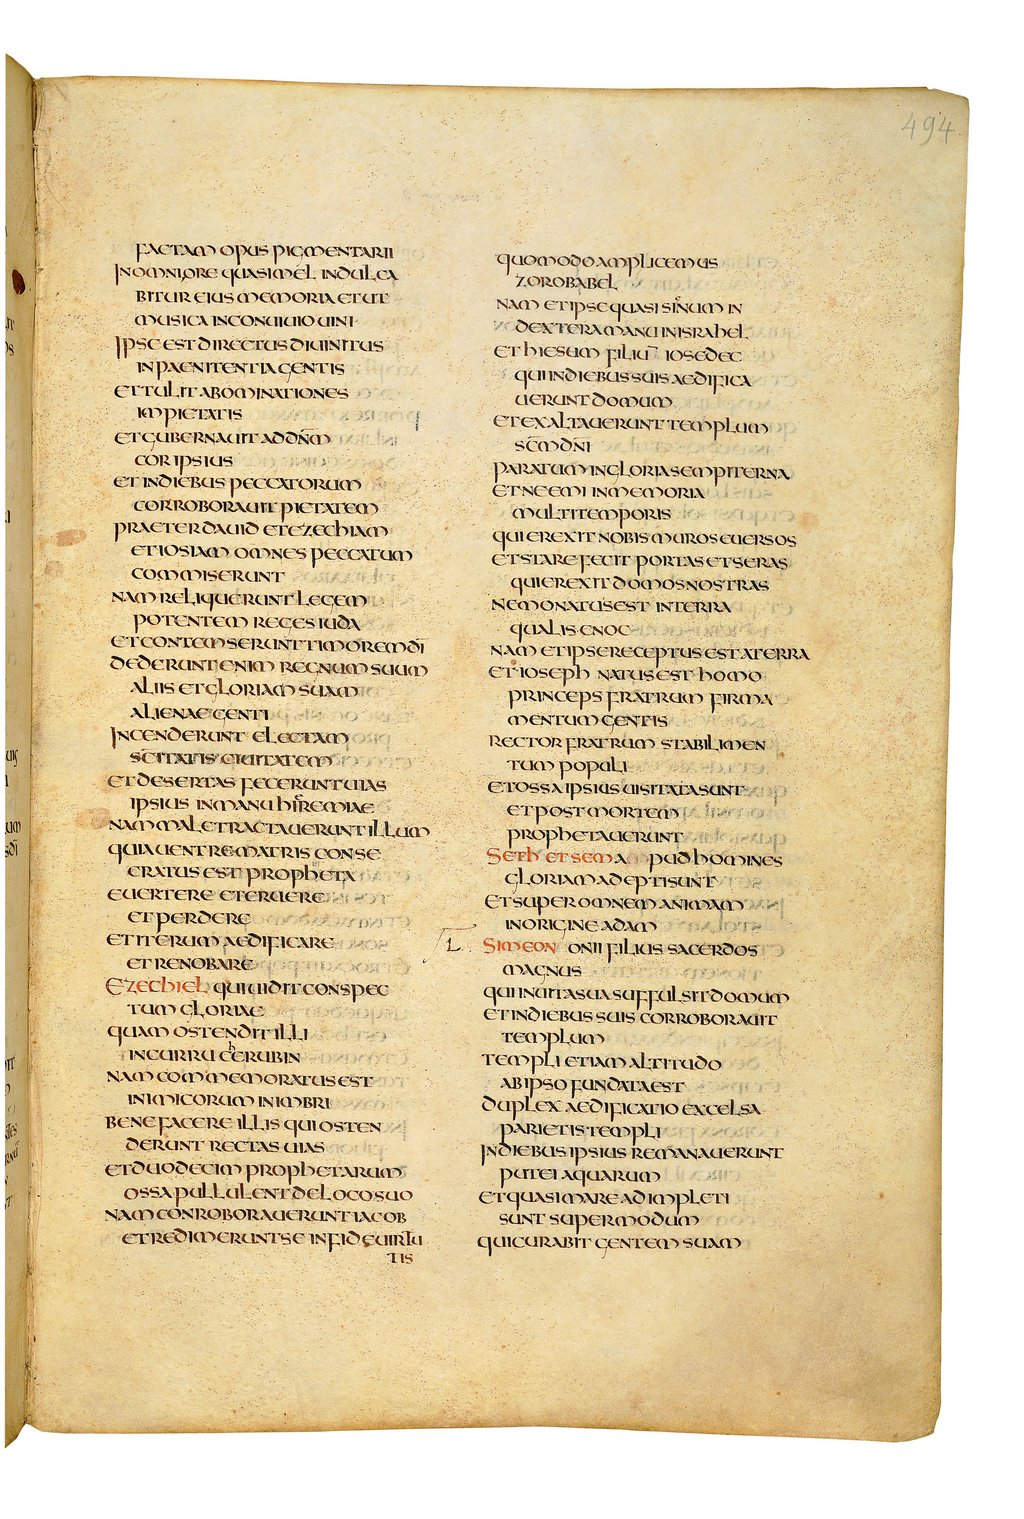 494
FACTAM OPUS PIGMENTARII
IN OMNI ORE QUASI MEL INDULCA
BITUR EIUS MEMORIA ET UT
MUSICA IN CONUIUIO UINI
IPSE EST DIRECTUS DIUINITUS
IN PAENITENTIA GENTIS
ET TULIT ABOMINATIONES
IMPIETATIS
ET GUBERNAUIT AD DN̄M
COR IPSIUS
ET IN DIEBUS PECCATORUM
CORROBORAUIT PIETATEM
PRAETER DAUID ET EZECHIAM
ET IOSIAM OMNES PECCATUM
COMMISERUNT
NAM RELIQUERUNT LEGEM
POTENTEM REGES IUDA
ET CONTEMSERUNT TIMOREM DĪ
DEDERUNT ENIM REGNUM SUUM
ALIIS ET GLORIAM SUAM
ALIENAE GENTI
INCENDERUNT ELECTAM
SC̄ITATIS CIUITATEM
ET DESERTAS FECERUNT UIAS
IPSIUS IN MANU HIEREMIAE
NAM MALE TRACTAUERUNT ILLUM
QUI A UENTRE MATRIS CONSE
CRATUS EST PROPHETA
EUERTERE ET ERUERE
ET PERDERE
ET ITERUM AEDIFICARE
ET RENOBARE
EZECHIEL QUI UIDIT CONSPEC
TUM GLORIAE
QUAM OSTENDIT ILLI
IN CURRU CHERUBIN
NAM COMMEMORATUS EST
INIMICORUM IN IMBRI
BENEFACERE ILLIS QUI OSTEN
DERUNT RECTAS UIAS
ET DUODECIM PROPHETARUM
OSSA PULLULENT DE LOCO SUO
NAM CONROBORAUERUNT IACOB
ET REDIMERUNT SE IN FIDE UIRTU
TIS
QUOMODO AMPLICEMUS
ZOROBABEL
NAM ET IPSE QUASI SIGNUM IN
DEXTERA MANU IN ISRAHEL
ET HIESUM FILIŪ IOSEDEC
QUI IN DIEBUS SUIS AEDIFICA
UERUNT DOMUM
ET EXALTAUERUNT TEMPLUM
SC̄M DN̄I
PARATUM IN GLORIA SEMPITERNA
ET NEEMI IN MEMORIA
MULTI TEMPORIS
QUI EREXIT NOBIS MUROS EUERSOS
ET STARE FECIT PORTAS ET SERAS
QUI EREXIT DOMOS NOSTRAS
NEMO NATUS EST IN TERRA
QUALIS ENOC
NAM ET IPSE RECEPTUS EST A TERRA
ET IOSEPH NATUS EST HOMO
PRINCEPS FRATRUM FIRMA
MENTUM GENTIS
RECTOR FRATRUM STABILIMEN
TUM POPULI
ET OSSA IPSIUS UISITATA SUNT
ET POST MORTEM
PROPHETAUERUNT
SETH ET SEM APUD HOMINES
GLORIAM ADEPTI SUNT
ET SUPER OMNEM ANIMAM
IN ORIGINE ADAM
L SIMEON ONII FILIUS SACERDOS
MAGNUS
QUI IN UITA SUA SUFFULSIT DOMUM
ET IN DIEBUS SUIS CORROBORAUIT
TEMPLUM
TEMPLI ETIAM ALTITUDO
AB IPSO FUNDATA EST
DUPLEX AEDIFICATIO EXCELSA
PARIETIS TEMPLI
IN DIEBUS IPSIUS REMANAUERUNT
PUTEI AQUARUM
ET QUASI MARE ADIMPLETI
SUNT SUPER MODUM
QUI CURABIT GENTEM SUAM